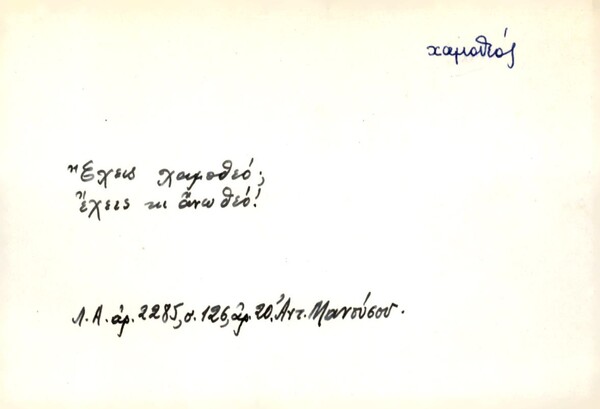 χαμοθεός
Ἔχεις χαμοθεό;
ἔχεις κι ἄνω θεό!
Λ.Α. ἀρ. 2285, σ. 126, ἀρ. 20, Ἀντ. Μανούσου.